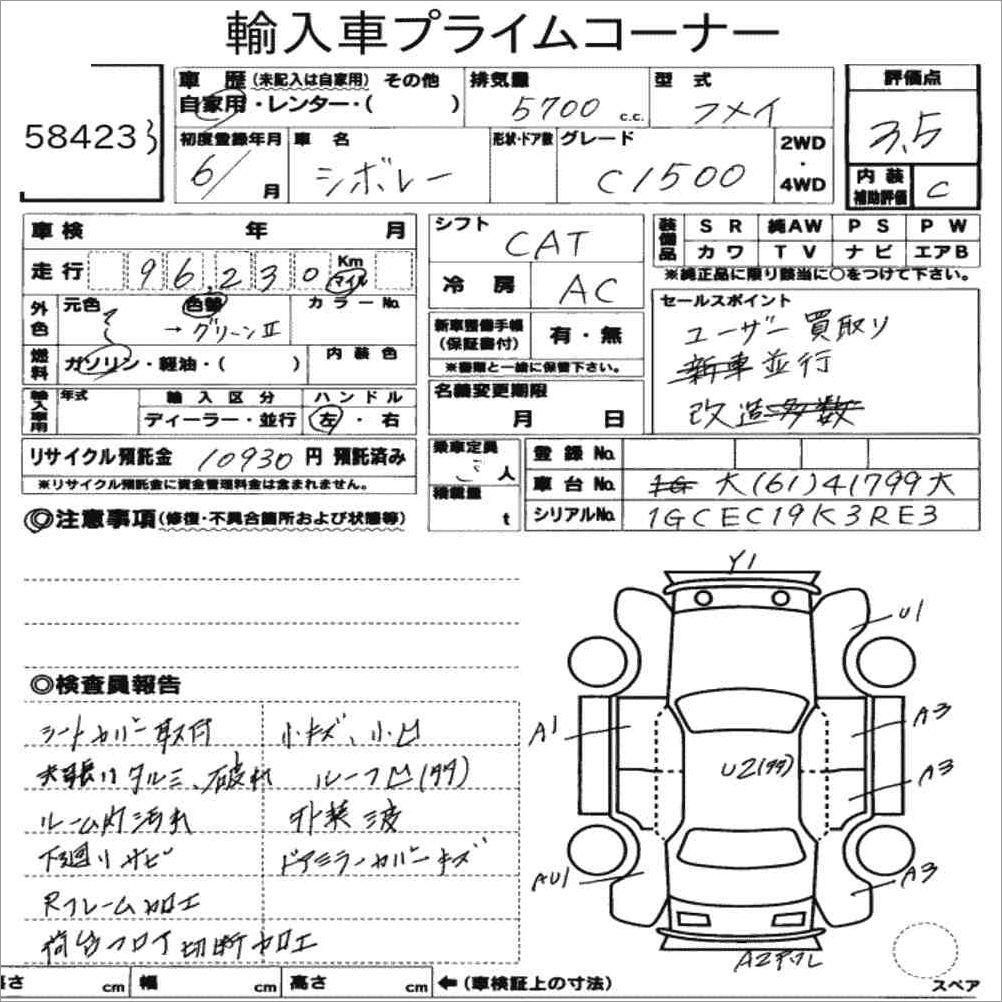 輸入車プライムコーナー
58423
車 歴 (未記入は自家用) その他
自家用・レンター・( )
排気量 5700 c.c.
型 式 フメイ
評価点 3.5
初度登録年月 6/ 月
車 名 シボレー
形状・ドア数
グレード C1500
2WD・4WD
内装補助評価 C
車検 年 月
走行 96,230 Km マイル
外色 元色 色替 → グリーンⅡ カラーNo.
燃料 ガソリン・軽油・( ) 内装色
輸入車用 年式 輸入区分 ハンドル
ディーラー・並行 左・右
リサイクル預託金 10930 円 預託済み
※リサイクル預託金に資金管理料金は含まれません。
シフト CAT
冷 房 AC
新車整備手帳 (保証書付) 有・無
※書類と一緒に保管下さい。
名義変更期限
月 日
装備品 SR 純AW PS PW
カワ TV ナビ エアB
※純正品に限り該当に○をつけて下さい。
セールスポイント
ユーザー買取り
新車並行
改造多数
乗車定員 人
積載量 t
登録No.
車台No. 大(61)41799大
シリアルNo. 1GCEC19K3RE3
◎注意事項(修復・不具合箇所および状態等)
◎検査員報告
シートカバー取付 小キズ、小凹
天張りタルミ、破れ ルーフ凹(タタ)
ルーム内汚れ 外装凹波
下廻りサビ ドアミラーカバーキズ
Rフレーム加工
荷台フロア切断加工
Y1
U1
A1
A3
U2(タタ)
A3
AU1
A3
A2
長さ cm 幅 cm 高さ cm ←(車検証上の寸法)
スペア